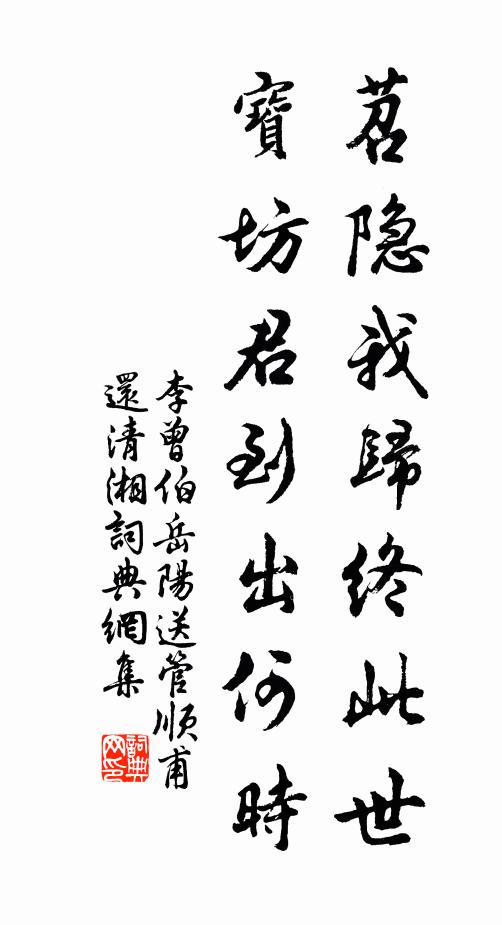 苕隐我歸終此世
寶坊君到出何時
李曾伯岳陽送管順甫
還清湘詞典網集
詞典
网印